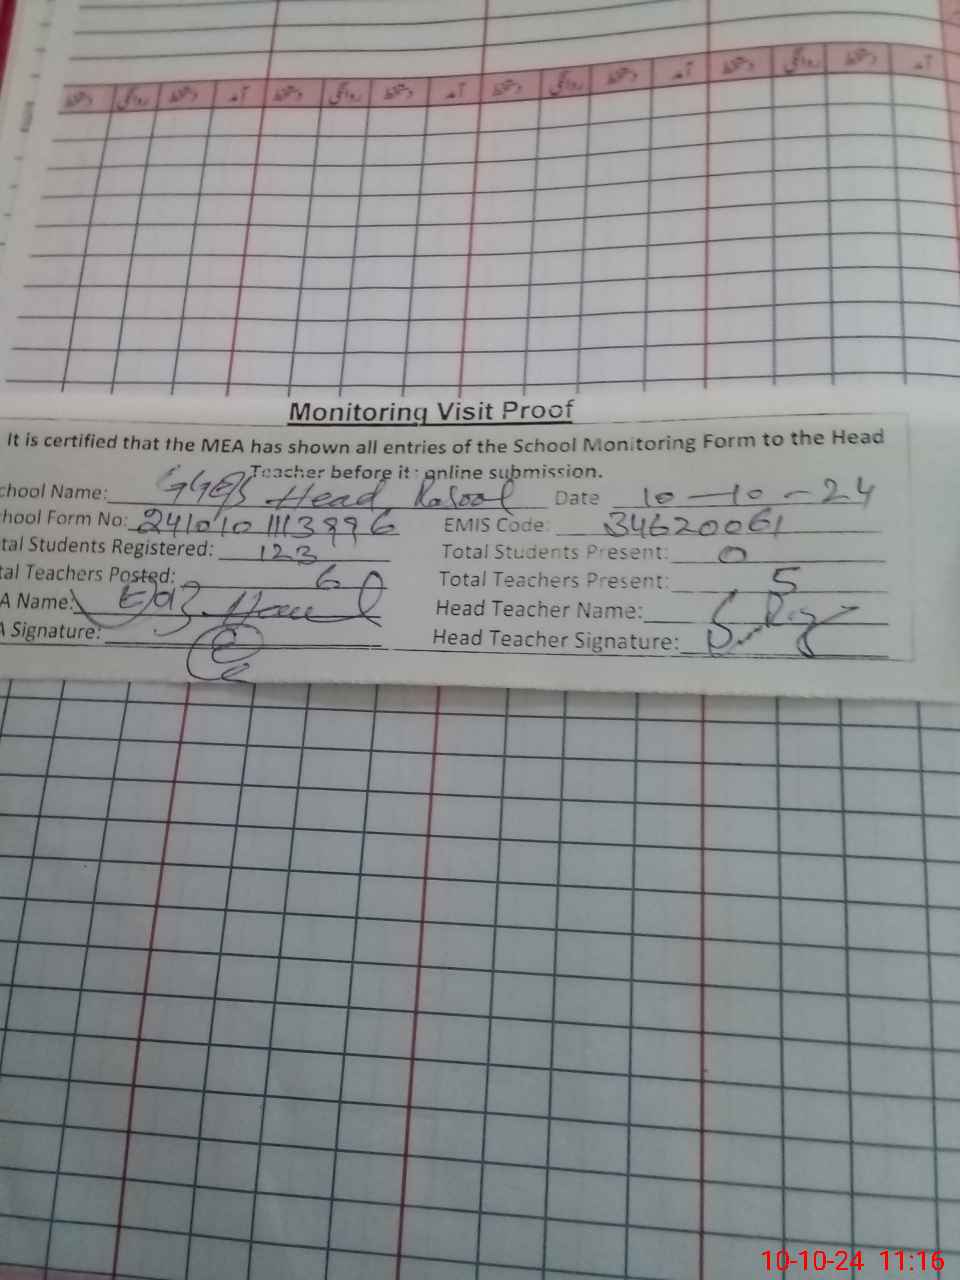 دستخط روانگی دستخط آمد دستخط روانگی دستخط آمد دستخط روانگی دستخط آمد دستخط روانگی دستخط آمد
Monitoring Visit Proof
It is certified that the MEA has shown all entries of the School Monitoring Form to the Head
Teacher before it: online submission.
chool Name: GGES Head Rasool Date 10-10-24
hool Form No: EMIS Code: 34620061
tal Students Registered: 123 Total Students Present: 0
tal Teachers Posted: 6 Total Teachers Present: 5
A Name: Head Teacher Name:
A Signature: Head Teacher Signature:
10-10-24 11:16